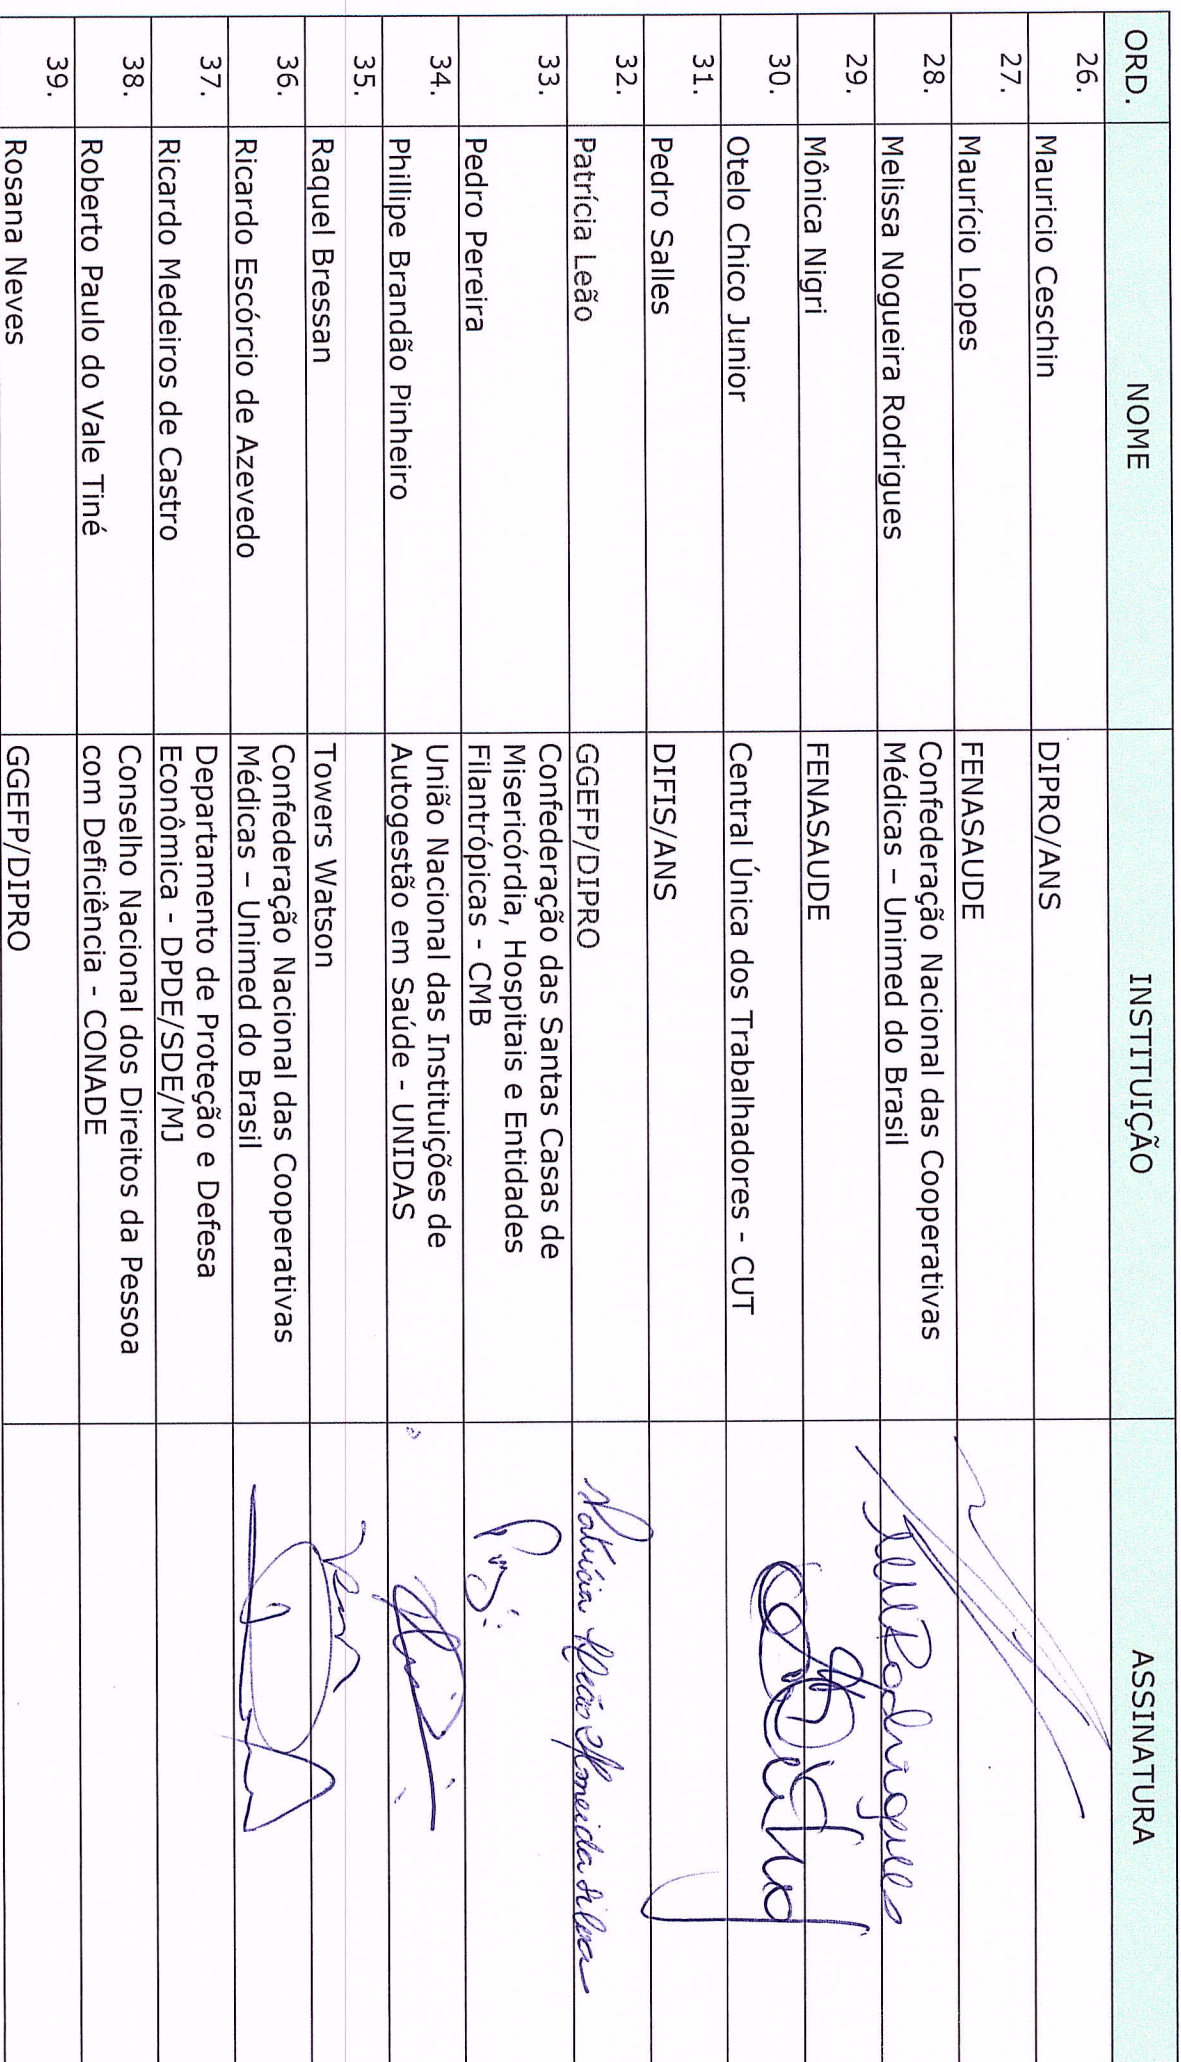 ORD. NOME INSTITUIÇÃO ASSINATURA
26. Mauricio Ceschin DIPRO/ANS
27. Maurício Lopes FENASAUDE
28. Melissa Nogueira Rodrigues Confederação Nacional das Cooperativas
Médicas – Unimed do Brasil Rodrigues
29. Mônica Nigri FENASAUDE
30. Otelo Chico Junior Central Única dos Trabalhadores - CUT
31. Pedro Salles DIFIS/ANS
32. Patrícia Leão GGEFP/DIPRO Patrícia Leão Almeida Silva
33. Pedro Pereira Confederação das Santas Casas de
Misericórdia, Hospitais e Entidades
Filantrópicas - CMB
34. Phillipe Brandão Pinheiro União Nacional das Instituições de
Autogestão em Saúde - UNIDAS
35. Raquel Bressan Towers Watson
36. Ricardo Escórcio de Azevedo Confederação Nacional das Cooperativas
Médicas – Unimed do Brasil
37. Ricardo Medeiros de Castro Departamento de Proteção e Defesa
Econômica - DPDE/SDE/MJ
38. Roberto Paulo do Vale Tiné Conselho Nacional dos Direitos da Pessoa
com Deficiência - CONADE
39. Rosana Neves GGEFP/DIPRO